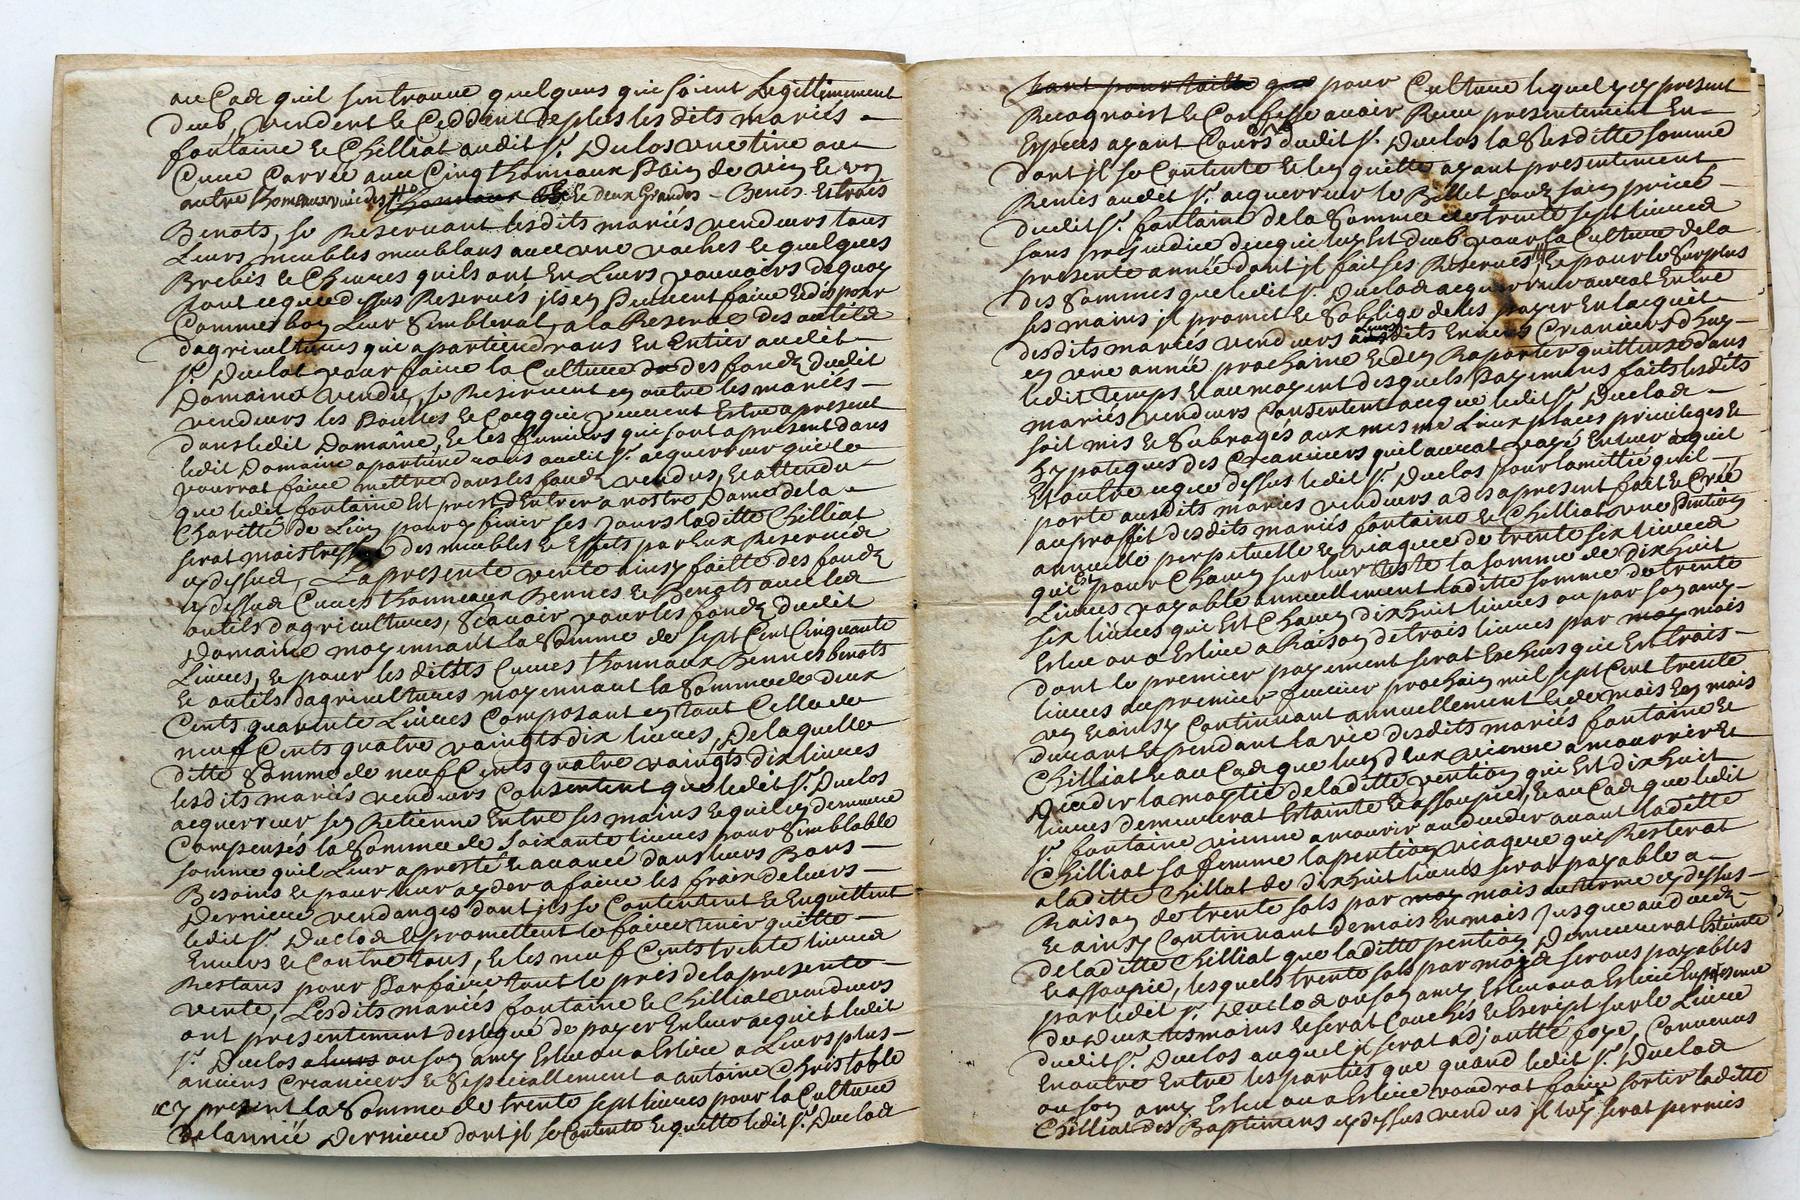 au Cas quil sen trouue quelques qui soient Legitimement
deub, vendent & Ceddent de plus les dits mariés
fontaine & Chilliat audit Sr. Duclos une tine ou
Cuue Carrée auec Cinq thonneaux Bois de vin & un
autre Tonneaux & deux Grandes Benes & trois
Benots, se Reseruant lesdits mariés vendeurs tous
Leurs meubles meublans auec une vaches & quelques
Brebis & Cheures quils ont En Leurs pouuoirs de quoy
tout ce que dessus Reserués ils en peuuent faire & disposer
Comme bon Leur Semblerat, a la Reserue des outils
dagricultures qui apartiendrons En Entier audit
Sr. Duclos pour faire la Culture des fondz dudit
Domaine vendu, se Reseruent en outre les mariés
vendeurs les Poulles & Coq qui peuuent Estre apresent
dans ledit Domaine, & les fumiers qui sont apresent dans
ledit Domaine apartiendrons audit Sr. acquerreur quil
pourrat faire mettre dans les fondz vendus, & attendu
que ledit fontaine Est prest dEntrer a nostre Dame de la
Charitté de Lion pour y finir ses Jours laditte Chilliat
serat maistresse des meubles & Effets par Eux Reserués
cy dessus, La presente vente ainsy faitte des fondz
cy dessus Cuues thonneaux Bennes & Benots auec les
outils dagricultures, Scauoir pour les fondz dudit
Domaine moyennant la Somme de sept Cent Cinquante
Liures, & pour les dittes Cuues thonnaux Bennes benots
& outils dagricultures moyennant la Somme de deux
Cents quarente Liures Composant en tout Celle de
neuf Cents quatre vaingts dix liures, De laquelle
ditte Somme de neuf Cents quatre vaingts dix liures
lesdits mariés vendeurs Consentent que ledit Sr. Duclos
acquerreur en Retienne Entre ses mains & quil en demeure
Compensés la Somme de Soixante liures pour Semblable
somme quil Leur a presté & auancé dans leurs
Besoins & pour leur ayder a faire les fraix de leurs
Dernieres vendanges dont ils se Contentent & Enquittent
ledit Sr. Duclos & promettent le faire tenir quitte
Enuers & Contre tous, & les neuf Cents trente liures
Restans pour Parfaire tout le pris de la presente
vente, Lesdits mariés fontaine & Chilliat vendeurs
ont presentement deslegué de payer En leur acquit ledit
Sr. Duclos ou son amy Esleu ou a Eslire a Leurs plus
anciens Creanciers & Specialement a antoine Christoble
icy present la Somme de trente sept liures pour la Culture
de lannée Derniere dont il se Contente & quitte ledit Sr. Duclos
pour Culture lequel icy present
Recognoist & Confesse auoir Receu presentement En
Especes ayant Cours dudit Sr. Duclos la Susditte somme
dont il se Contente & len quitte ayant presentement
Remis audit Sr. acquerreur le Billet
dudit Sr. fontaine de la Somme de trente sept liures
sans prejudice de ce qui luy Est deub pour la Culture de la
presente année dont il fait ses Reserues, & pour le Surplus
des Sommes que ledit Sr. Duclos acquerreur aurat Entre
ses mains il promet & Soblige de les payer En lacquit
desdits mariés vendeurs Enuers Creanciers
en une année prochaine & den Raporter quittance dans
ledit temps & au moyent desquels Payemens faits lesdits
mariés vendeurs Consentent a ce que ledit Sr. Duclos
soit mis & Subrogés aux mesme Lieux places priuileges &
hypoteques des Creanciers quil aurat payé En leur acquit
Et outre ce que dessus ledit Sr. Duclos pour lamittié quil
porte ausdits mariés vendeurs a des apresent fait & Créé
au proffit desdits mariés fontaine & Chilliat une Pention
annuelle perpetuelle & viagere de trente six liures
qui est pour Chacun sur leur teste la somme de dixhuit
Liures payable annuellement laditte somme de trente
six liures qui Est Chacun dixhuit liures ou par son amy
Esleu ou a Eslire a Raison de trois liures par moy mois
dont le premier payement serat Escheus qui Est trois
liures au premier feurier prochain mil sept Cent trente
un & ainsy Continuant annuellement & de mois En mois
durant & pendant la vie desdits mariés fontaine &
Chilliat & au Cas que lun deux vienne a mourrir &
deceder la moytié de laditte pention qui Est dixhuit
liures demeurerat Estainte & assoupie, & au Cas que ledit
Sr. fontaine vienne a mourir ou deceder auant laditte
Chilliat sa femme la pention viagere qui Resterat
a laditte Chilliat de dixhuit liures serat payable a
Raison de trente sols par moy mois au terme cy dessus
& ainsy Continuant de mois En mois Jusque au decedz
de laditte Chilliat que laditte pention Demeurerat Esteinte
& assoupie, lesquels trente sols par mois serons payables
par ledit Sr. Duclos ou son amy Esleu ou a Eslire En presence
de deux tesmoins & serat Couchés & Escript sur le Liure
dudit Sr. Duclos auquel il serat adjouttés foye, Conuenus
En outre Entre les parties que quand ledit Sr. Duclos
ou son amy Esleu ou a Eslire voudrat faire sortir laditte
Chilliat des Bastimens cy dessus vendus il luy serat permis